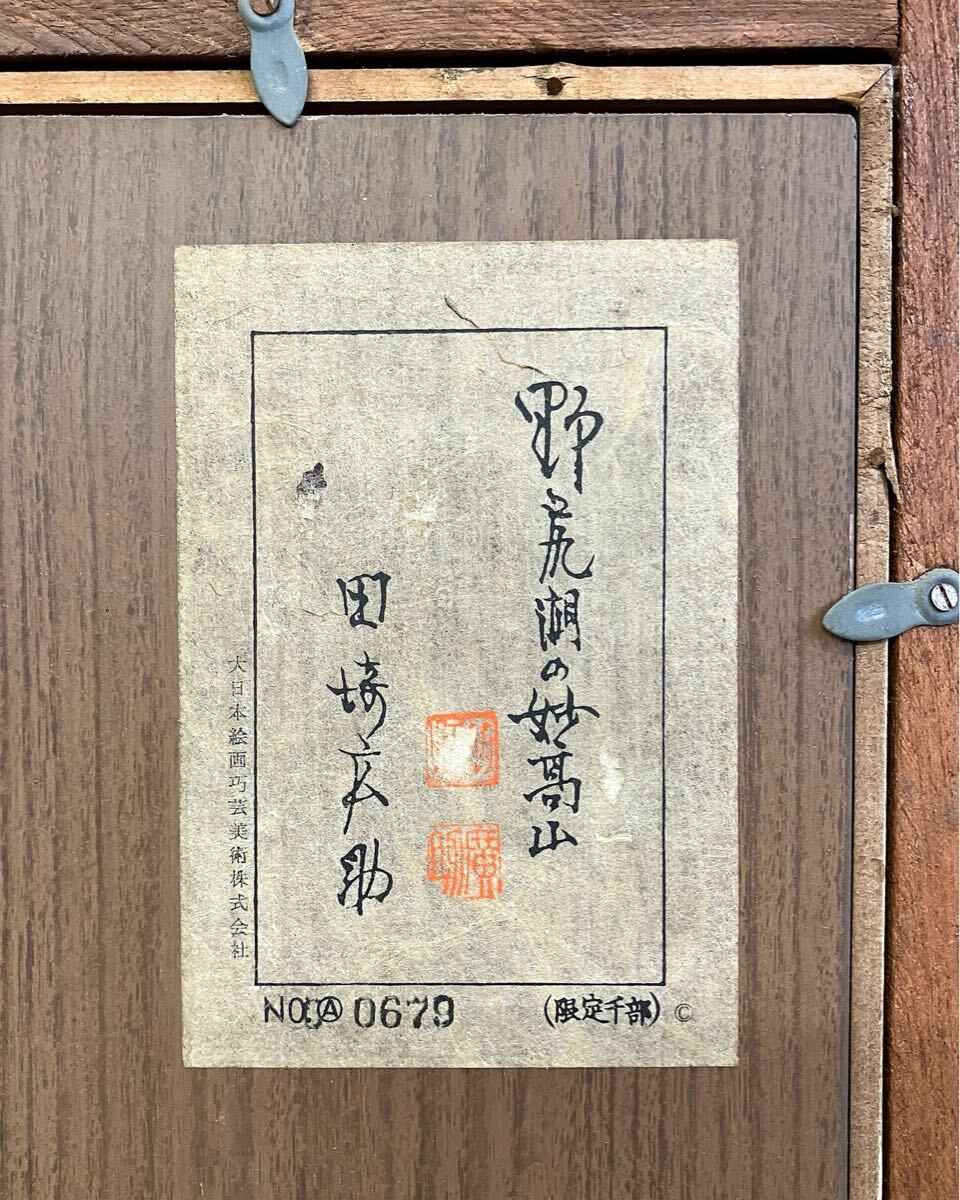 野尻湖の妙高山
田崎広助
廣助
大日本絵画巧芸美術株式会社
NO. Ⓐ 0679
(限定千部) ©